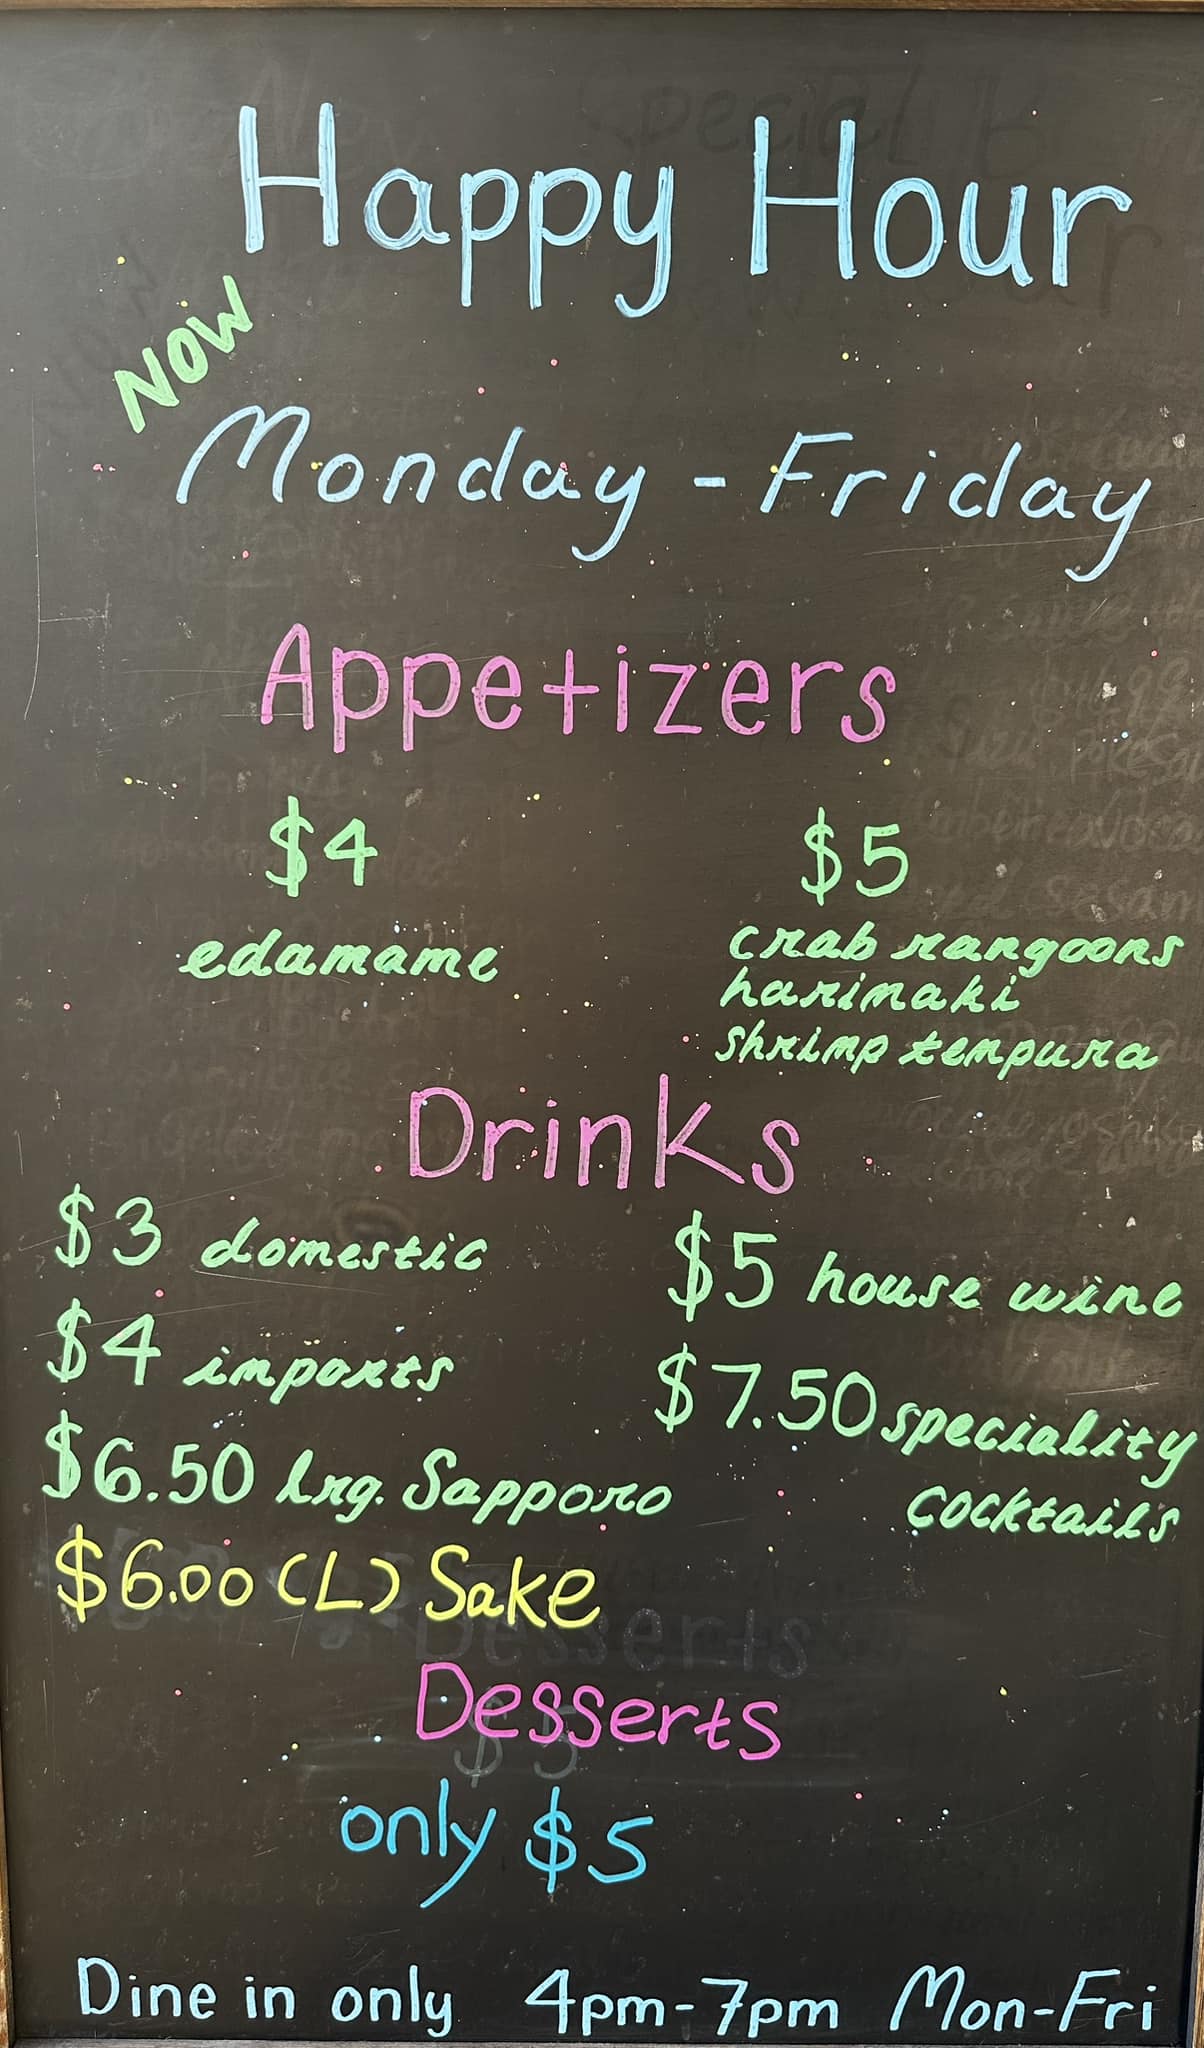 Happy Hour
NOW
Monday - Friday
Appetizers
$4
edamame
$5
crab rangoons
harimaki
shrimp tempura
Drinks
$3 domestic
$4 imports
$6.50 lrg. Sapporo
$6.00 (L) Sake
$5 house wine
$7.50 speciality
cocktails
Desserts
only $5
Dine in only 4pm-7pm Mon-Fri